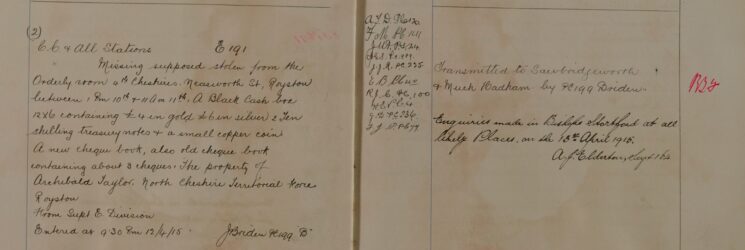 (2)
C.C & All Stations E 191
Missing supposed stolen from the
Orderly room 4th Cheshires. Neasworth St, Royston
between 1 Pm 10th & 10 Am 11th, A Black Cash box
12x6 containing £4 in gold £6 in silver 2 Ten
shilling treasury notes & a small copper coin
A new cheque book, also old cheque book
containing about 3 cheques. The property of
Archibald Taylor. North Cheshire Territorial Force
Royston
From Supt E Division
Entered at 9 30 Pm 12/4/15 J Briden PC 199 "B"
E. B. PC
R.J. C. PC 100
PC 234
Transmitted to Sawbridgeworth
& Much Hadham by PC 199 Briden
Enquiries made in Bishops Stortford at all
likely Places, on the 13th April 1915.
A.J. Elderton, Sergt 162